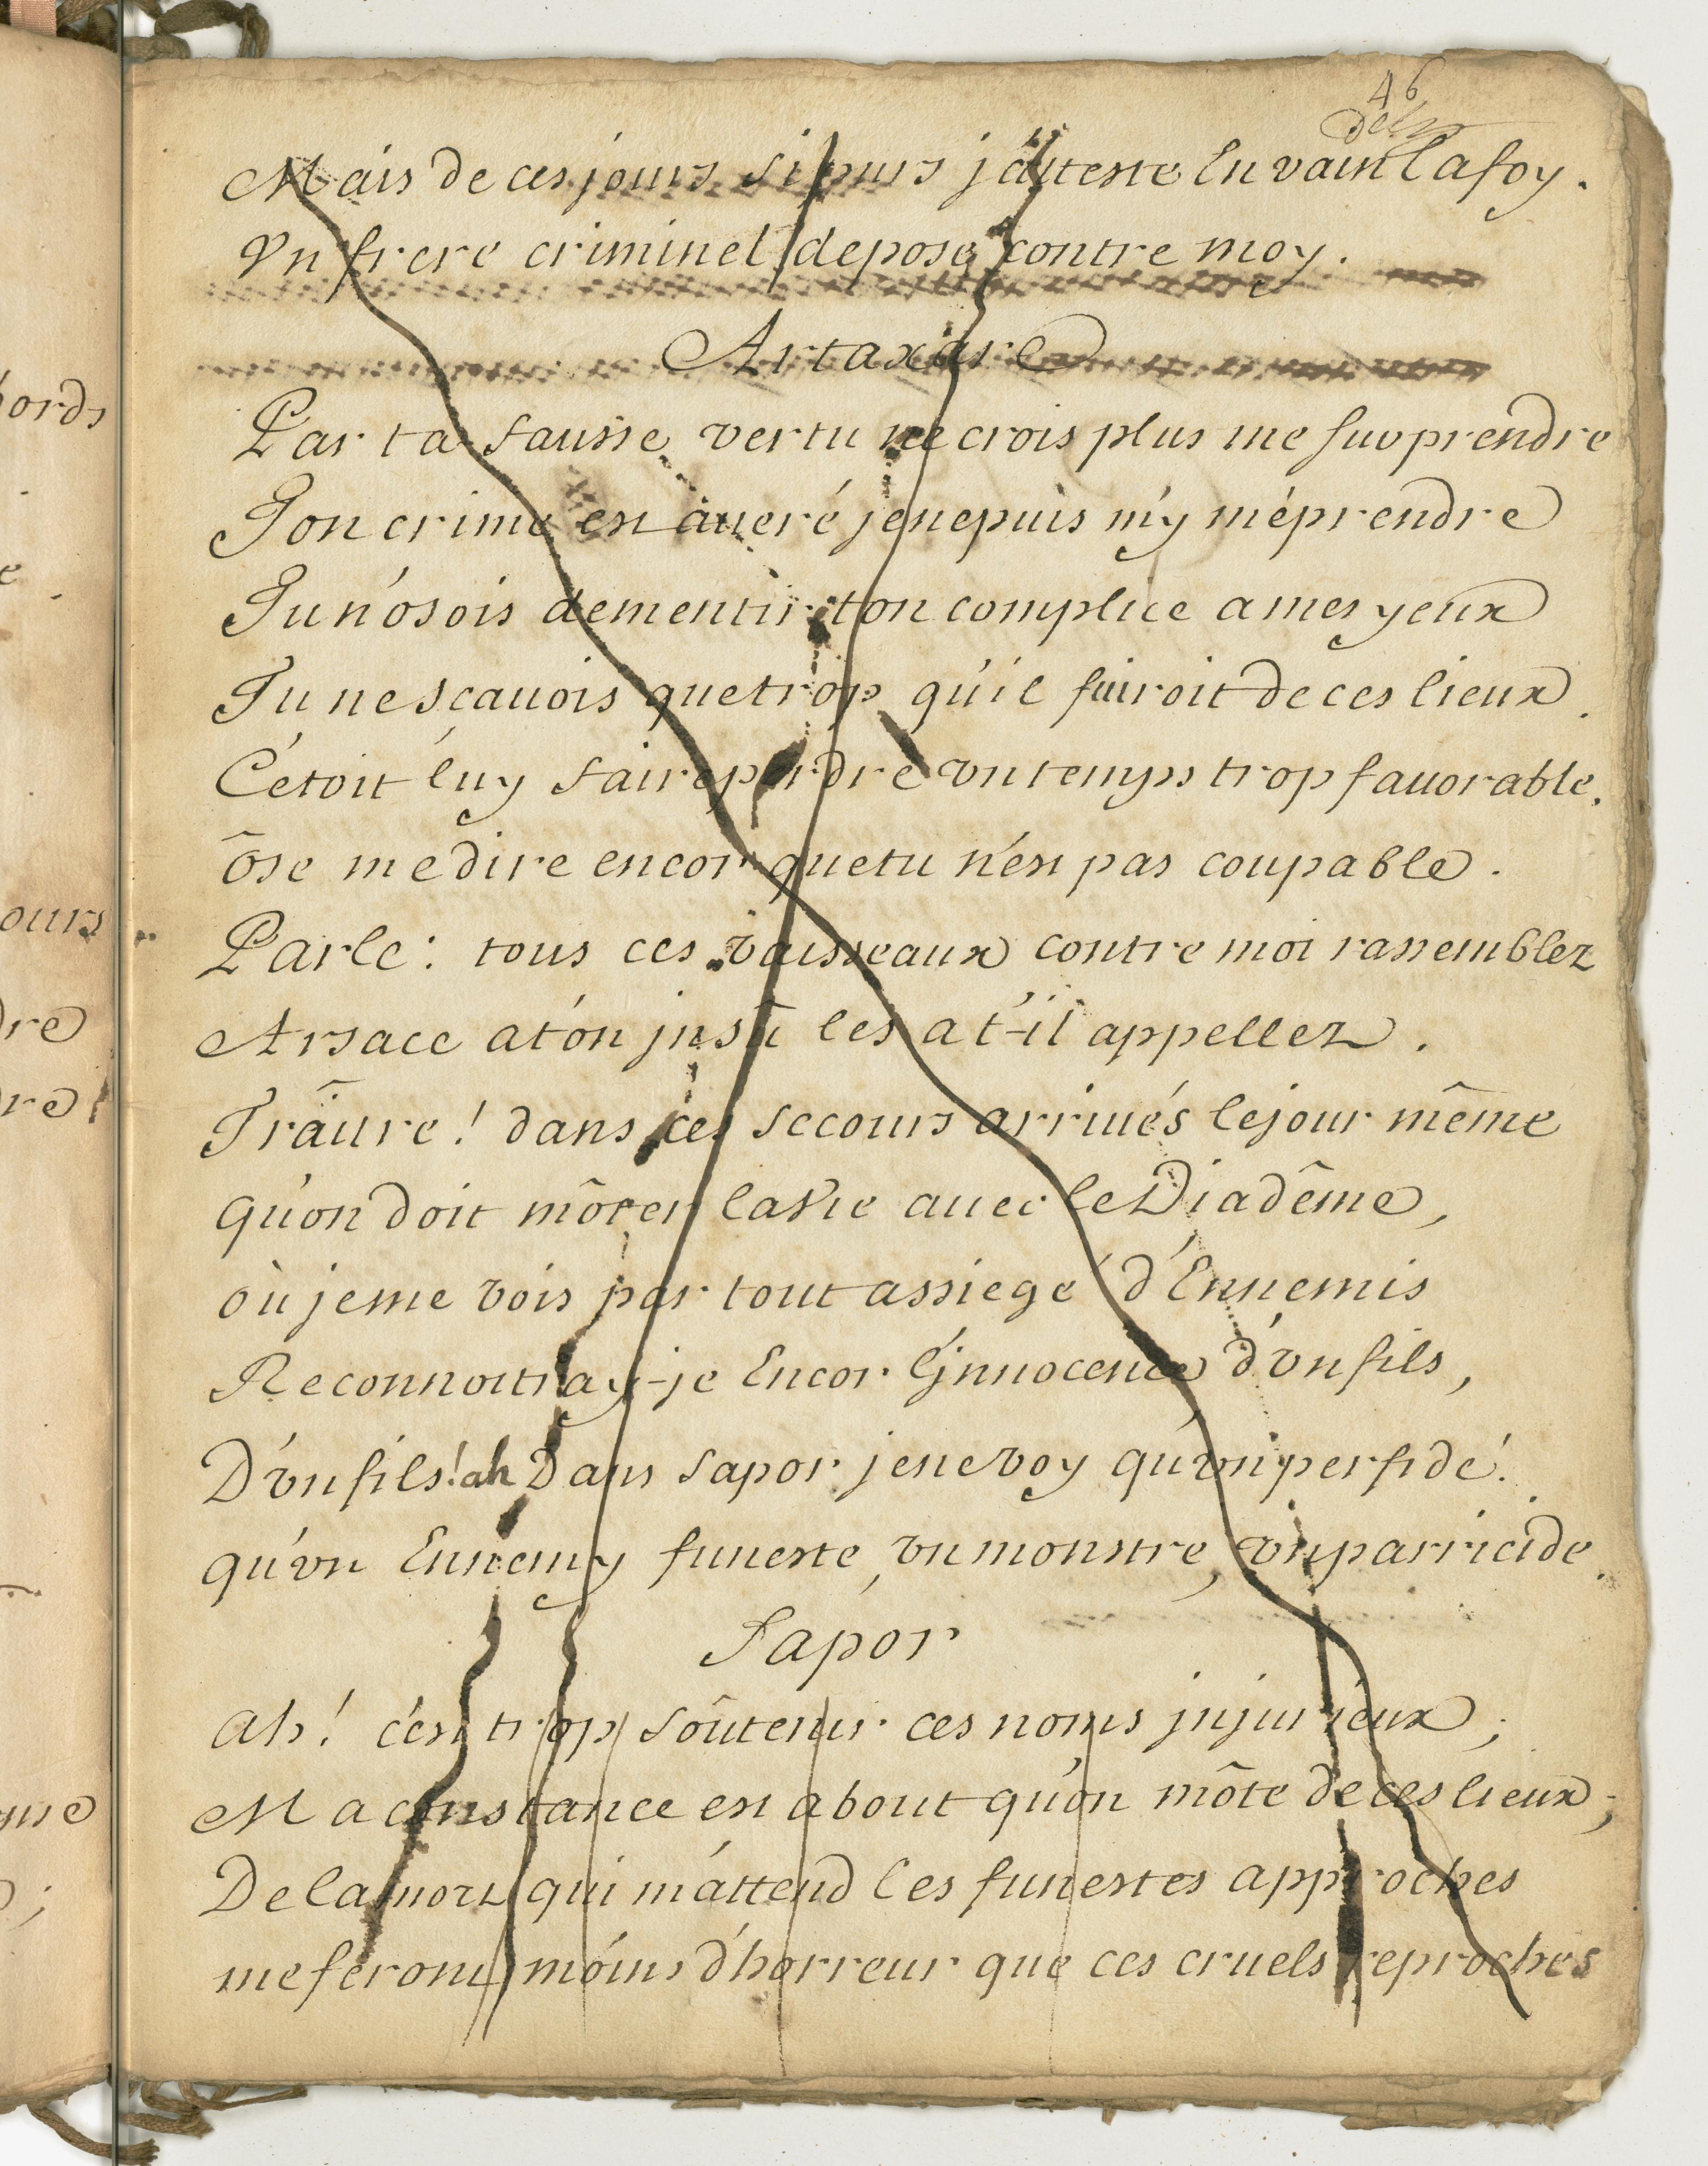 46
Mais de ces jours si purs j'atteste En vain la foy.
Vn frere criminel depose contre moy.
Artaxare
Par ta fausse vertu ne crois plus me surprendre
Ton crime est aueré je ne puis m'y méprendre
Tu n'ósois dementir ton complice a mes yeux
Tu ne scauois que trop qu'il fuiroit de ces lieux.
C'étoit luy faire perdre vn temps trop fauorable.
ôse me dire encor que tu n'és pas coupable.
Parle: tous ces vaisseaux contre moi rassemblez
Arsace at'ón sçu les a t'-il appellez.
Traître! dans ces secours arriués le jour même
qu'on doit m'ôter la vie auec le Diadême,
où je me vois par tout assiegé d'Ennemis
Reconnoitray-je Encor l'jnnocence d'vn fils,
D'vn fils! ah Dans Sapor je ne voy qu'vn perfide!
qu'vn Ennemy funeste, vn monstre, vn parricide.
Sapor
Ah! c'est trop soûtenir ces noms jnjurieux;
Ma constance est a bout qu'on m'ôte de ces lieux;
De la mort qui m'attend les funestes approches
me feront moins d'horreur que ces cruels reproches
ords
ours
dre
dre!